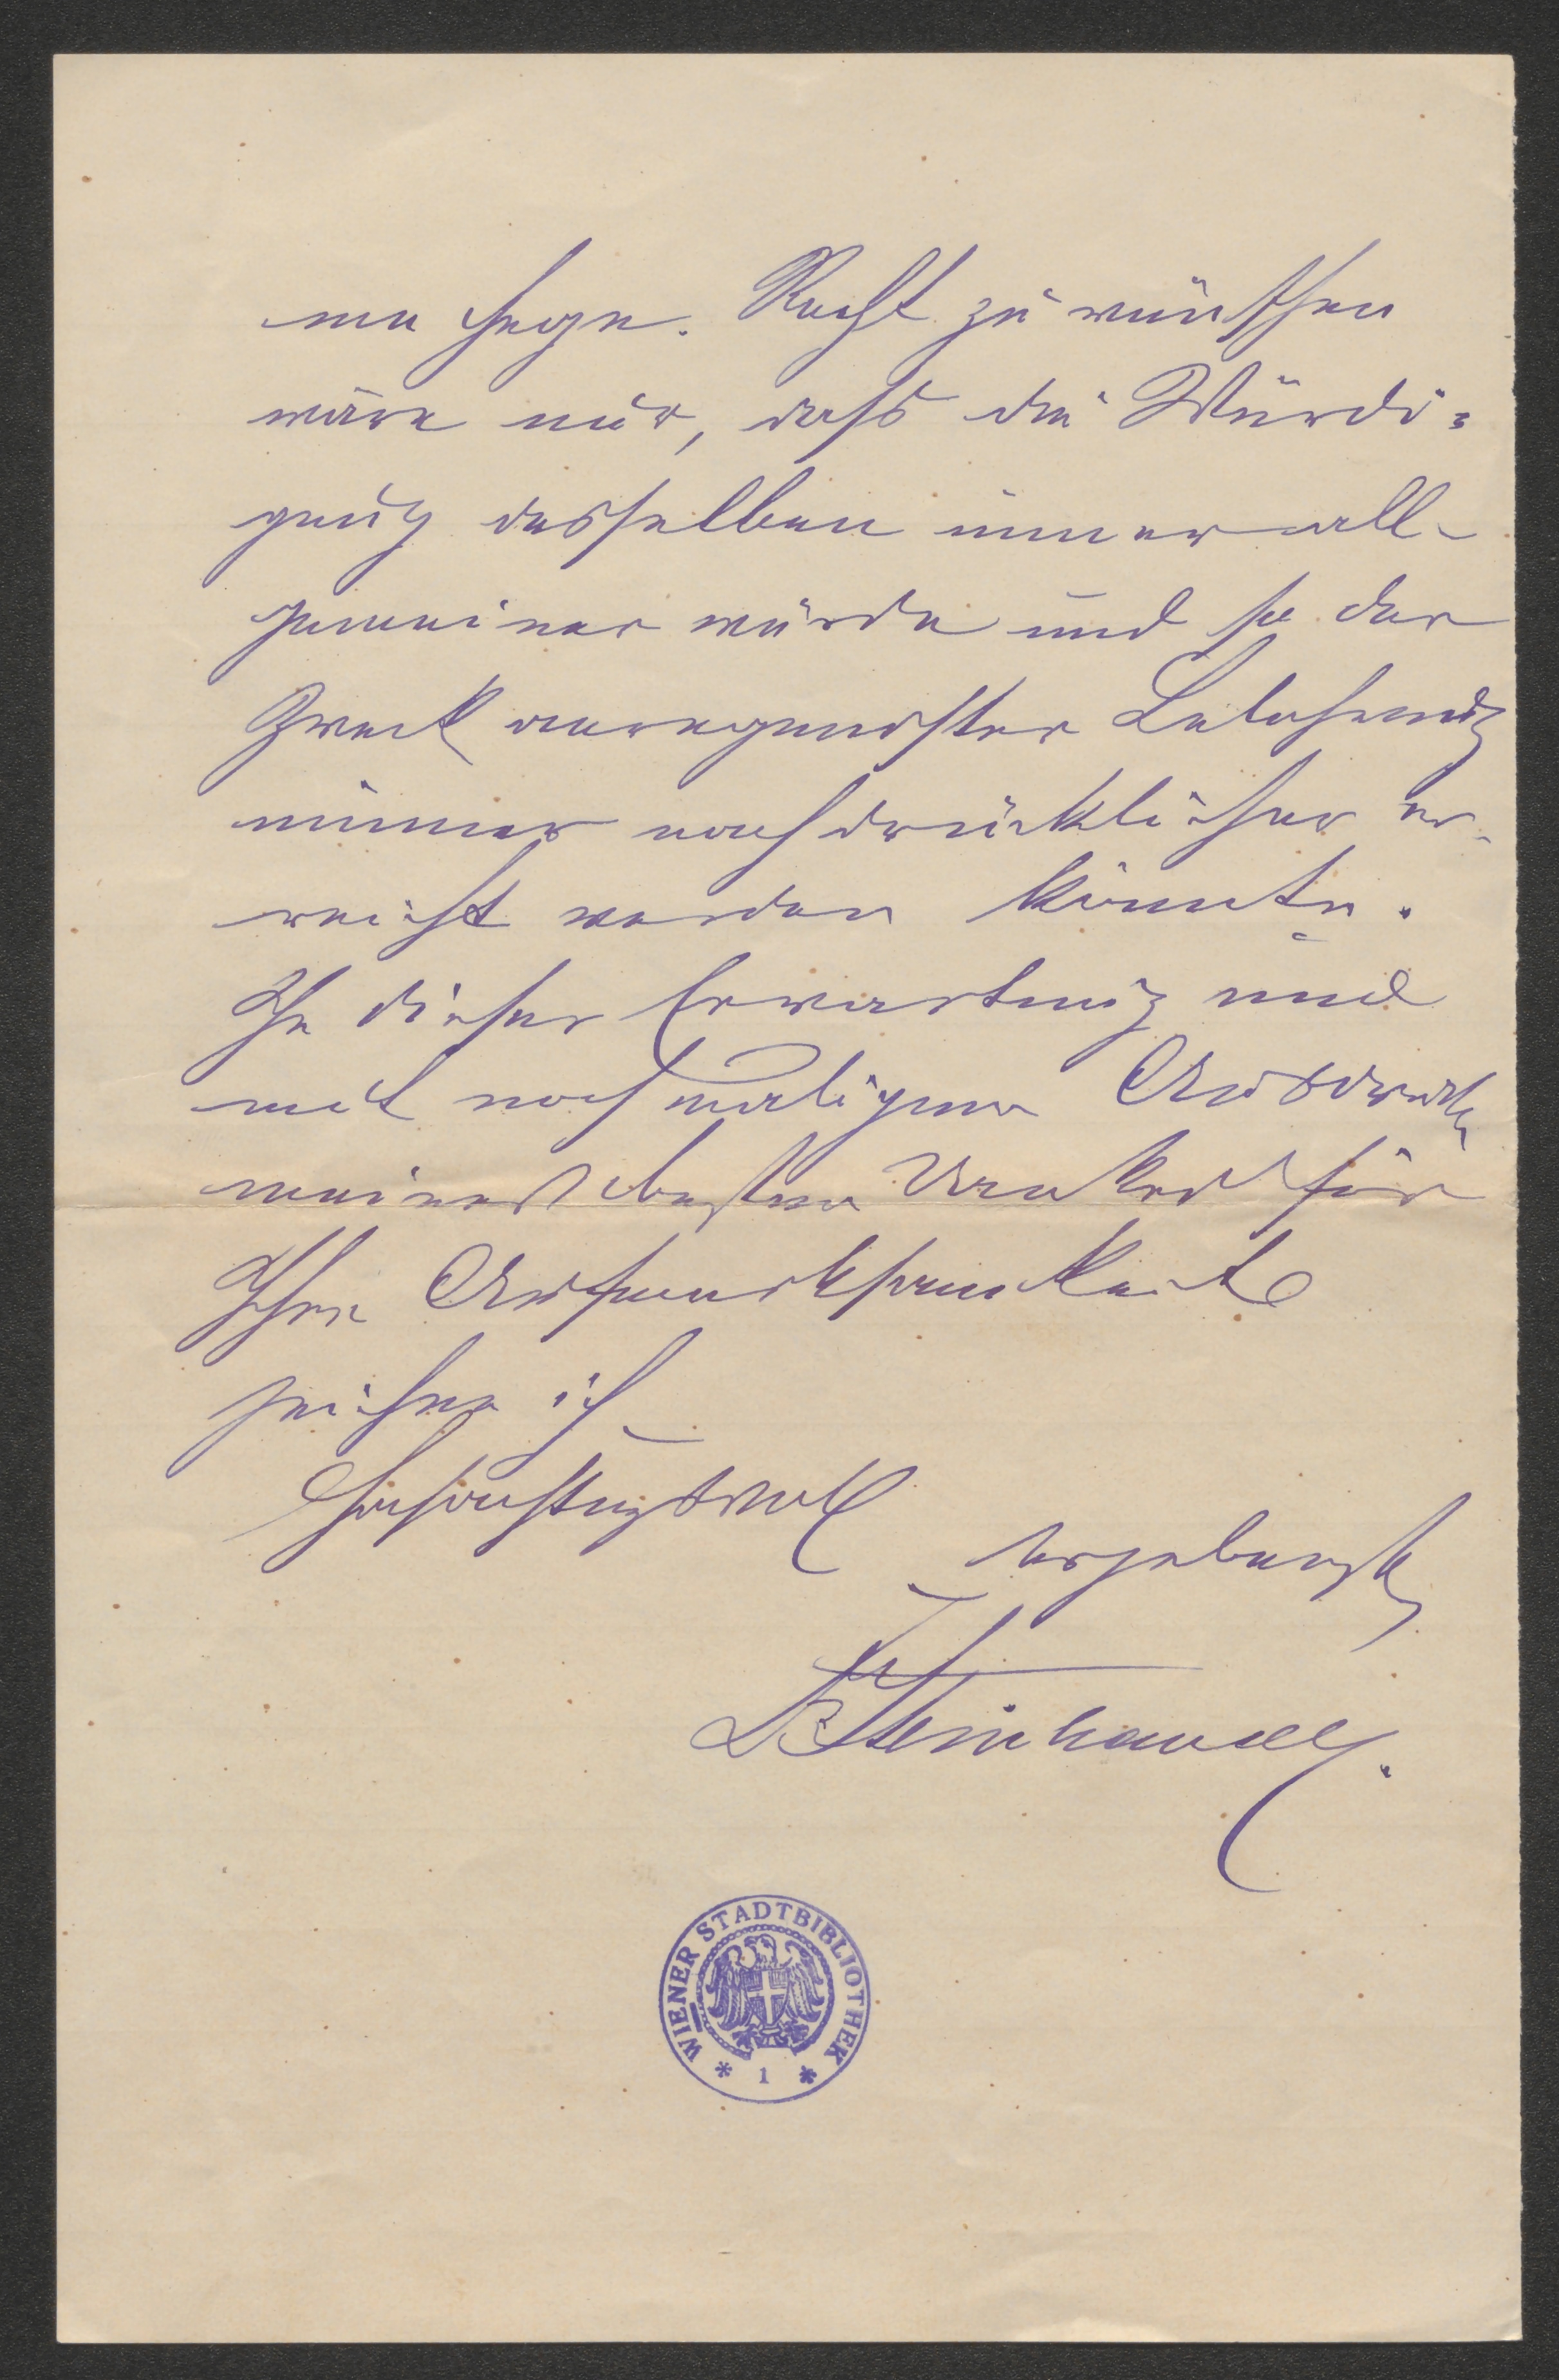 me hege. Recht zu wünschen
wäre nur, dass die Würdi-
gung desselben immer all-
gemeiner würde und so der
Zweck anregendster Belehrung
immer nachdrücklicher er-
reicht werden könnte.
In dieser Erwartung und
mit nochmaligem Ausdruck
meines besten Dankes für
Ihre Aufmerksamkeit
zeichne ich
hochachtungsvoll
ergebenst
Steinhauser.
WIENER STADTBIBLIOTHEK
* 1 *